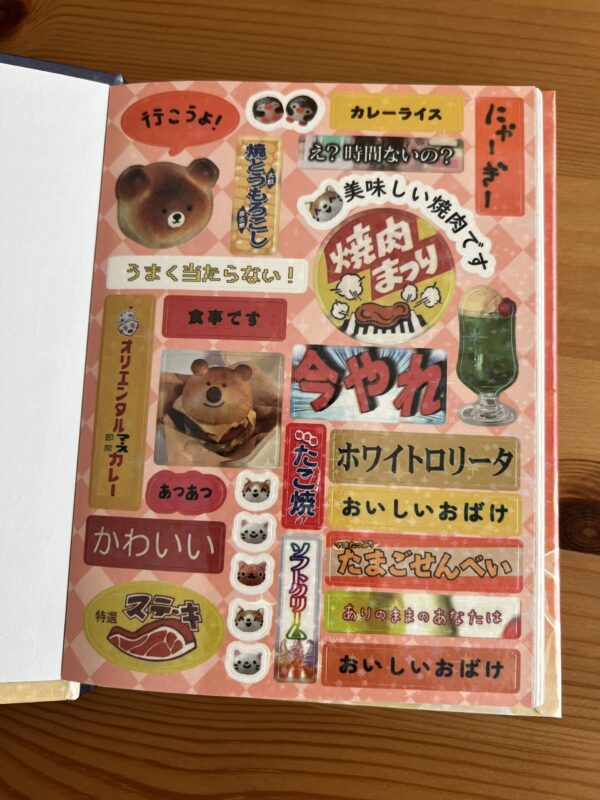 行こうよ!
カレーライス
にゃーぎー
え?時間ないの?
焼とうもろこし
美味しい焼肉です
焼肉
まつり
うまく当たらない!
食事です
オリエンタル
マース
カレー
即席
今やれ
たこ焼
ホワイトロリータ
あつあつ
おいしいおばけ
かわいい
ソフトクリーム
たまごせんべい
特選
ステーキ
ありのままのあなたは
おいしいおばけ